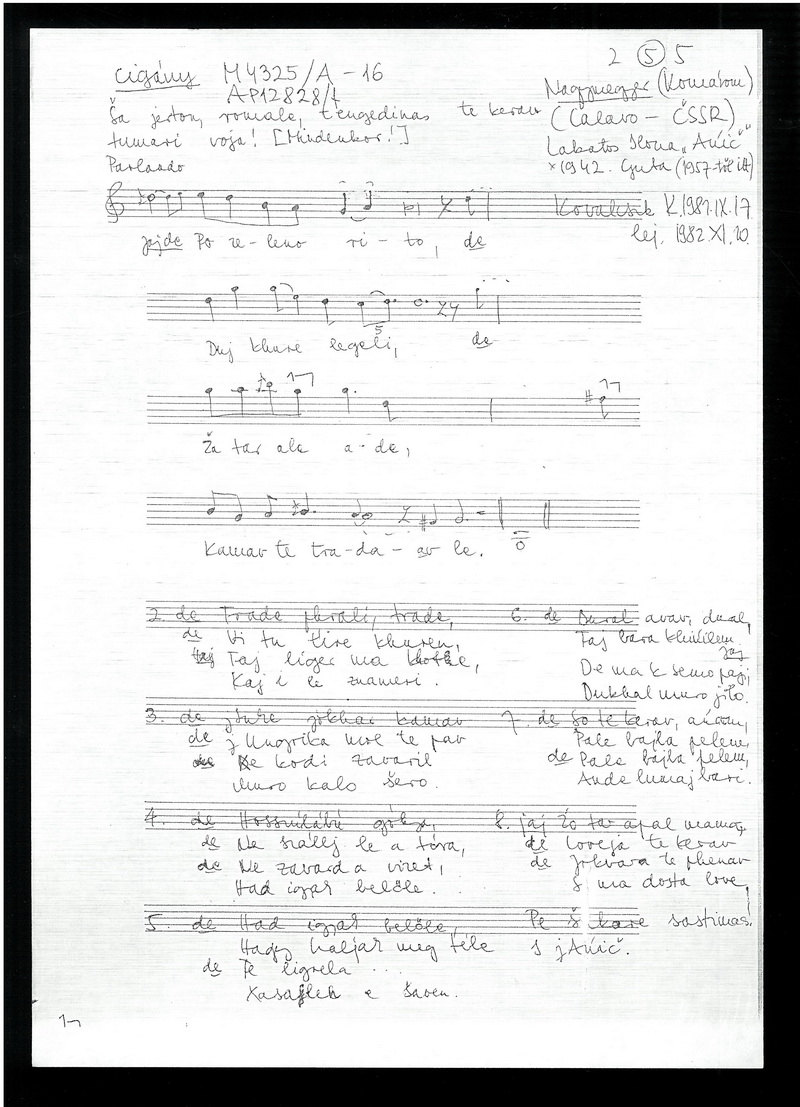 2 ⑤ 5
Cigány M4325/A-16
AP12828/
Ša jerton, romale, t'engedinas te kerav
tumari voja! [Mindenkor!]
Parlando
Nagymegyer (Komárom)
(Calavo - ČSSR)
Lakatos Ilona „Ančič"
×1942. Guta (1957-től itt)
Kovalcsik K. 1981.IX.17.
lej. 1982.XI.10.
jajde Po ze-leno ri-to, de
Duj khure legeli, de
5
Ža tar ale a-de,
Kamav te tra-da-av le.
2. de Trade phrali, trade,
de Vi tu tire khuren,
taj Taj liger ma
Kaj i le znameri.
3. de kamav
de J Ungrika mol te pav
de Ke kodi zavaril
Muro kalo šero.
4. de Hosszúlábú gólya,
de Ne szállj le a tóra,
de Ne zavard a vizet,
Had igyak belőle.
5. de Had igyak belőle,
Hagy haljak meg téle
de Te ligrela ...
e šaven.
6. de Dural avav, dural,
Taj bara
jaj
De ma k semo paji,
Dukhal muro jilo.
7. de So te kerav,
Pale bajla pelem,
de Pale bajla pelem,
Ande lumaj bari.
8. jaj Žo tar apal mamo,
de Loveja te kerav
de te phenav
S ma dosta love,
Pe š kare sastimas.
S jAnič.